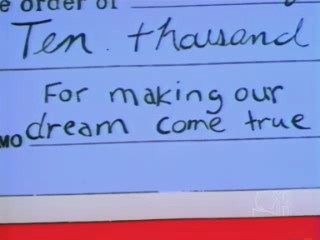 e order of
Ten thousand
For making our
MO dream come true